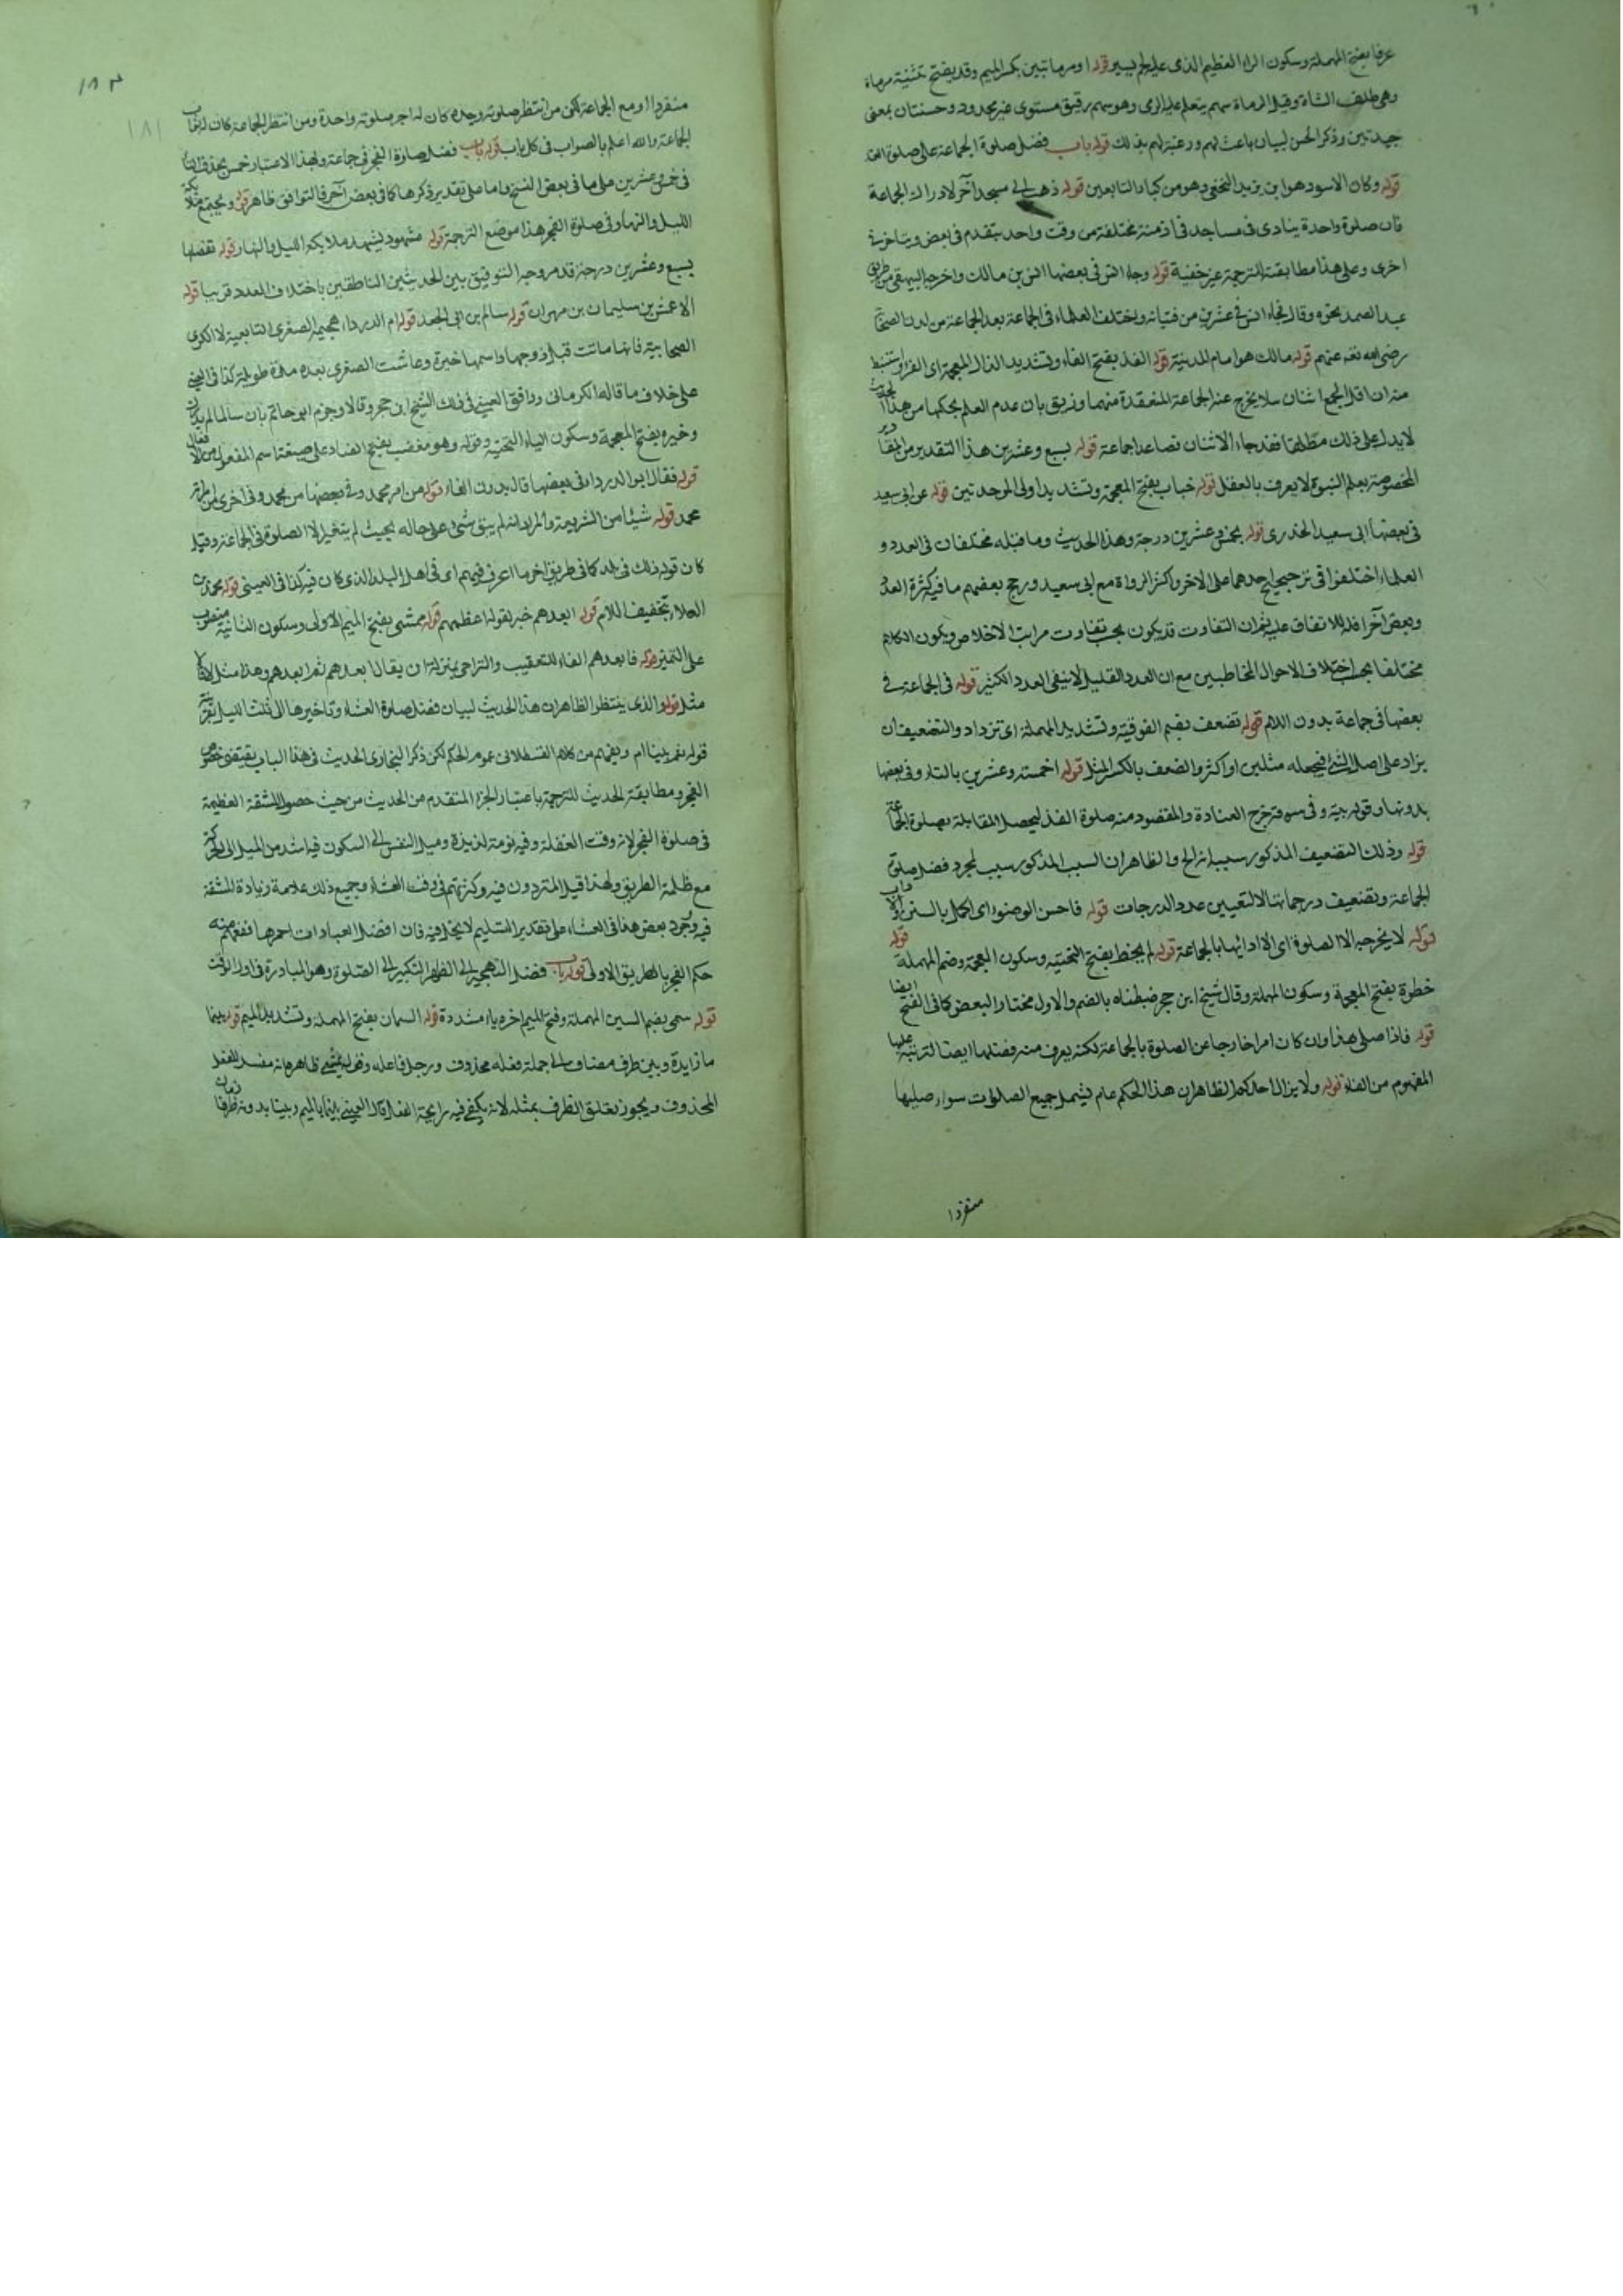 عرقا بفتح المهملة وسكون الراء العظيم الذى عليه لحم يسير قوله او مرماتين بكسر الميم وقد يفتح تثنية مرماة
وهى ظلف الشاة وقيل المرماة سهم يتعلم عليه الرمى وهو سهم رقيق مستوى غير محدود وحسنتان بمعنى
جيدتين وذكر الحسن لبيان باعث لهم ورغبة لهم بذلك قوله باب فضل صلوة الجماعة على صلوة الفذ
قوله وكان الاسود هو ابن يزيد النخعى وهو من كبار التابعين قوله ذهب الى مسجد آخر لادراك الجماعة
فان صلوة واحدة ينادى فى مساجد فى ازمنة مختلفة من وقت واحد يتقدم فى بعض ويتاخر فى
اخرى وعلى هذا مطابقته للترجمة غير خفية قوله وجاء انس فى بعضها انس بن مالك واخرجه البيهقى من طريق
عبد الصمد نحوه وقال فجاء انس فى عشرين من فتيانه واختلف العلماء فى الجماعة بعد الجماعة من لدن الصحابة
رضى الله تعه عنهم قوله مالك هو امام المدينة قوله الفذ بفتح الفاء وتشديد الذال المعجمة اى الفرد واستنبط
منه ان اقل الجمع اثنان لئلا يخرج عنه الجماعة المنعقدة منهما وزيق بان عدم العلم بحكمها من هذا الحديث
لا يدل على ذلك مطلقا فقد جاء الاثنان فصاعدا جماعة قوله بسبع وعشرين هذا التقدير من المقادير
المخصوصة بعلم النبوة لا يعرف بالعقل قوله خباب بفتح المعجمة وتشديد اولى الموحدتين قوله عن ابى سعيد
فى بعضها ابى سعيد الخدرى قوله بخمس وعشرين درجة وهذا الحديث وما قبله مختلفان فى العدد و
العلماء اختلفوا فى ترجيح احدهما على الاخر واكثر الرواة مع ابى سعيد ورجح بعضهم ما فيه كثرة العدد
وبعض آخر اقله للاتفاق عليه ثم ان التفاوت قد يكون بحسب تفاوت مراتب الاخلاص ويكون الكلام
مختلفا بحسب اختلاف الاحوال المخاطبين مع ان العدد القليل لا ينفى العدد الكثير قوله فى الجماعة فى
بعضها فى جماعة بدون اللام قوله تضعف بضم الفوقية وتشديد المهملة اى تزداد والتضعيف ان
يزاد على اصل الشئ فيجعله مثلين او اكثر والضعف بالكسر المثل قوله اخمسة وعشرين بالتاء وفى بعضها
بدونها وقوله بيته وفى سوقه خرج العادة والمقصود منه صلوة الفذ ليحصل المقابلة بصلوة الجماعة
قوله وذلك التضعيف المذكور سببه انه الخ والظاهر ان السبب المذكور سبب لمجرد فضل صلوة
الجماعة وتضعيف درجاتها لا لتعيين عدد الدرجات قوله فاحسن الوضوء اى اكمل بالسنن والآداب
قوله لا يخرجه الا الصلوة اى الا ادائها بالجماعة قوله لم يخط بفتح التحتية وسكون المعجمة وضم المهملة قوله
خطوة بفتح المعجمة وسكون المهملة وقال شيخ ابن حجر ضبطناه بالضم والاول مختار البعض كما فى الفتح ايضا
قوله فاذا صلى هذا وان كان امرا خارجا عن الصلوة بالجماعة لكنه يعرف منه فضلها ايضا لترتبه عليها
المفهوم من الفاء قوله ولا يزال احدكم الظاهر ان هذا الحكم عام فيشمل جميع الصلوات سواء صليها
منفردا
١٨٢
١٨١
منفردا او مع الجماعة لكن من انتظر صلوته وحده كان له اجر صلوته واحدة ومن انتظر الجماعة كان له ثواب
الجماعة والله اعلم بالصواب فى كل باب قوله باب فضل صلوة الفجر فى جماعة وبهذا الاعتبار خمس بحذف التاء
فى خمس وعشرين على ما فى بعض النسخ واما على تقدير ذكرها كما فى بعض آخر فالتوافق ظاهر قوله ويجتمع ملائكة
الليل والنهار فى صلوة الفجر هذا موضع الترجمة قوله مشهود ليشهد ملائكة الليل والنهار قوله تفضلها
بسبع وعشرين درجة قد مر وجه التوفيق بين الحديثين الناطقين باختلاف العدد قريبا قوله
الاعمش بن سليمان بن مهران قوله سالم بن ابى الجعد قوله ام الدرداء هجيمة الصغرى التابعية لا الكبرى
الصحابية فانها ماتت قبل زوجها واسمها خيرة وعاشت الصغرى بعده مدة طويلة كذا فى العينى
على خلاف ما قاله الكرمانى ووافق العينى فى ذلك الشيخ ابن حجر وقالا وجزم ابو حاتم بان سالما لم يدرك
وخيرة بفتح المعجمة وسكون الياء التحتية وقوله وهو مغضب بفتح الضاد على صيغة اسم المفعول من الافعال
قوله فقال ابو الدرداء فى بعضها قال بدون الفاء قوله من امر محمد وفى بعضها من محمد وفى اخرى من امة
محمد قوله شيئا من الشريعة والمراد انه لم يبق شئ على حاله بحيث لم يتغير الا الصلوة فى الجماعة وقيل
كان قوله ذلك فى بلد كما فى طريق اخر ما اعرف فيهم اى فى اهل البلد الذى كان فيه كذا فى العينى قوله محمد بن
العلاء بتخفيف اللام قوله ابعدهم خبر لقوله اعظمهم قوله ممشى بفتح الميم الاولى وسكون الثانية منصوب
على التميز قوله فابعدهم الفاء للتعقيب والتراخى بمنزلة ان يقال ابعدهم ثم ابعدهم وهذا مثل
مثل قوله والذى ينتظر الظاهر ان هذا الحديث لبيان فضل صلوة العشاء وتاخيرها الى ثلث الليل بقرينة
قوله ثم ينام ويفهم من كلام القسطلانى عموم الحكم لكن ذكر البخارى الحديث فى هذا الباب يقتضى خصوص
الفجر ومطابقة الحديث للترجمة باعتبار الجزء المتقدم من الحديث من حيث حصول المشقة العظيمة
فى صلوة الفجر لانه وقت الغفلة وفيه نومة لذيذة وميل النفس الى السكون فيه اشد من الميل الى الحركة
مع ظلمة الطريق ولهذا قيل المترددون فيه وكثرتهم فى وقت العشاء وجميع ذلك علامة زيادة المشقة
فيه ووجود بعض هذا فى العشاء على تقدير التسليم لا يخل فيه فان افضل العبادات احمزها ففهم منه
حكم الفجر بالطريق الاولى قوله باب فضل التهجير الى الظهر التبكير الى الصلوة وهو المبادرة فى اول الوقت
قوله سمى بضم السين المهملة وفتح الميم اخره ياء مشددة قوله السمان بفتح المهملة وتشديد الميم قوله بينما
ما زايدة وبين ظرف مضاف الى جملة فعله محذوف ورجل فاعله وقوله يمشى ظاهره انه مفسر للفعل
المحذوف ويجوز تعلق الظرف بمثله لانه يكفى فيه رايحة الفعل قال العينى بينما بالميم وبينا بدونه ظرفا زمان